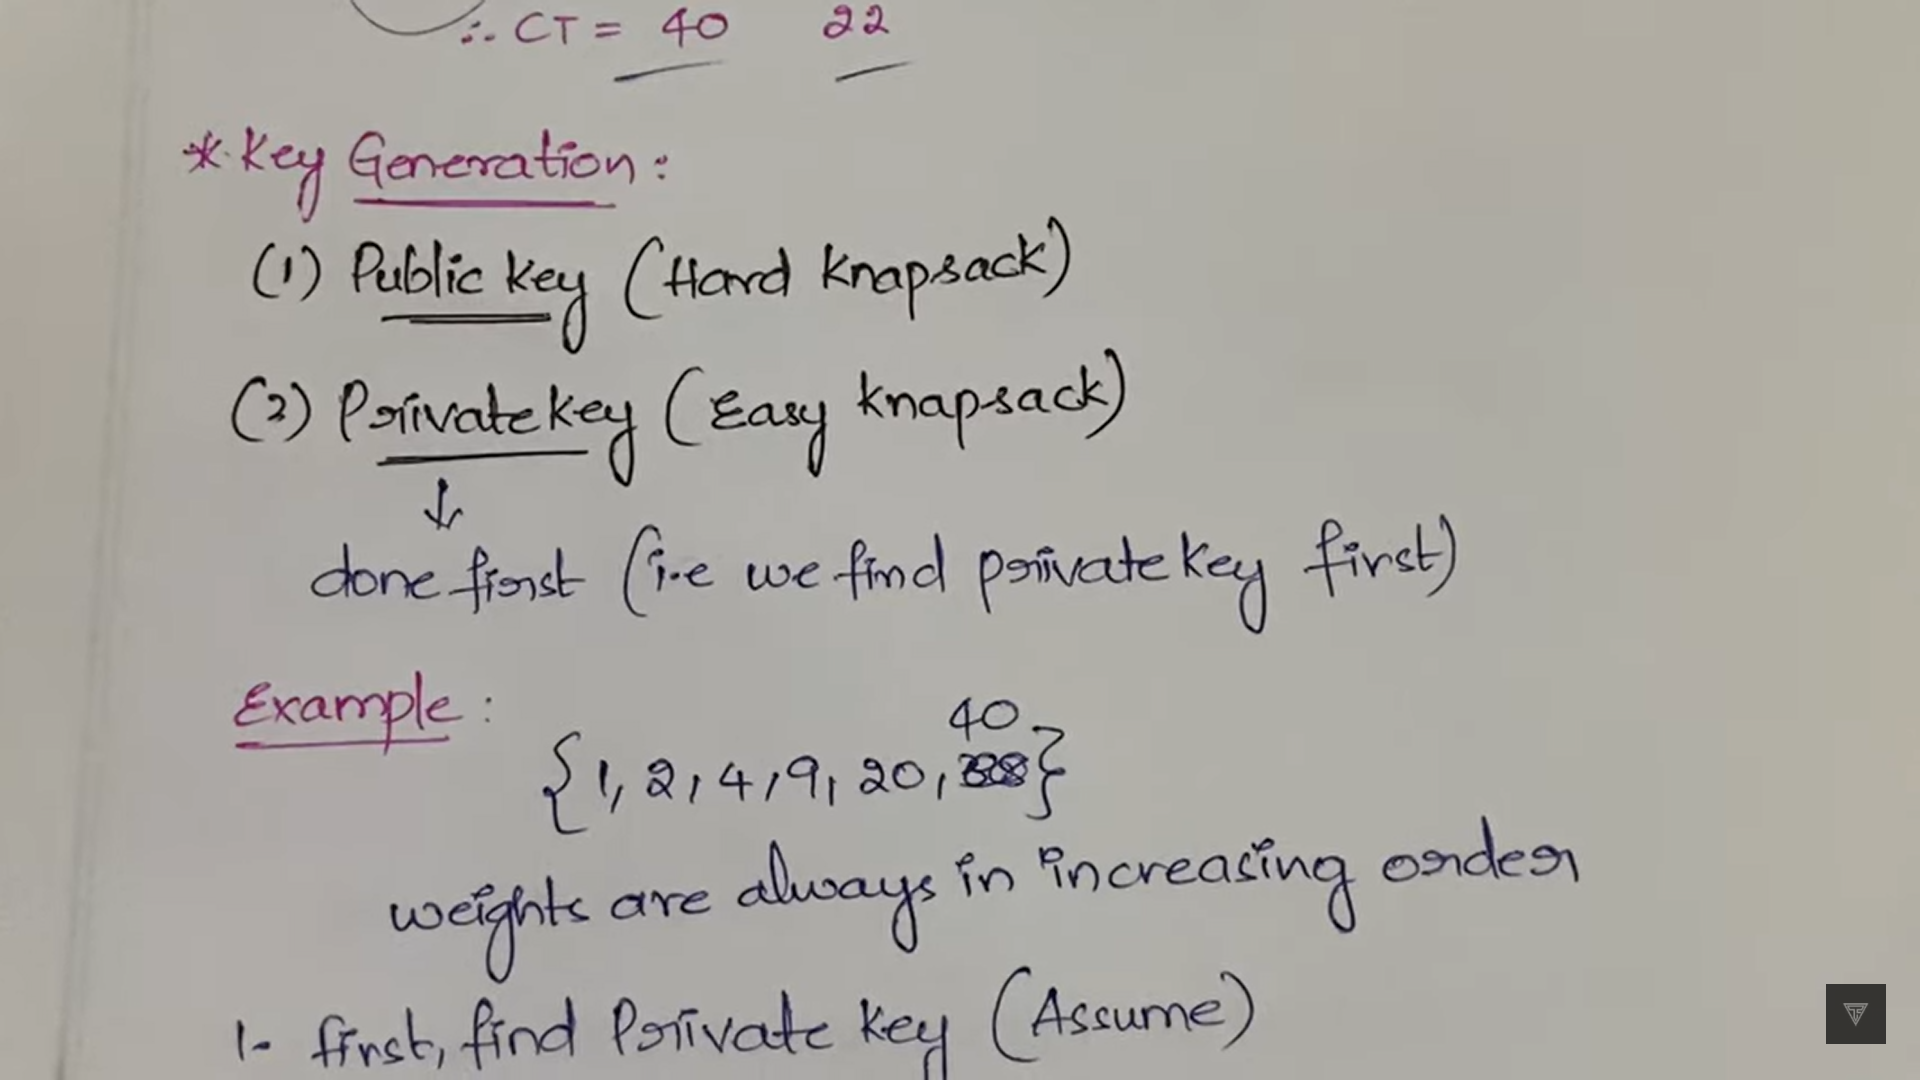 ∴ CT = 40 22
* Key Generation :
(1) Public key (Hard knapsack)
(2) Private key (Easy knapsack)
↓
done first (i.e we find private key first)
Example :
40
{1, 2, 4, 9, 20, }
weights are always in increasing order
1- first, find Private key (Assume)